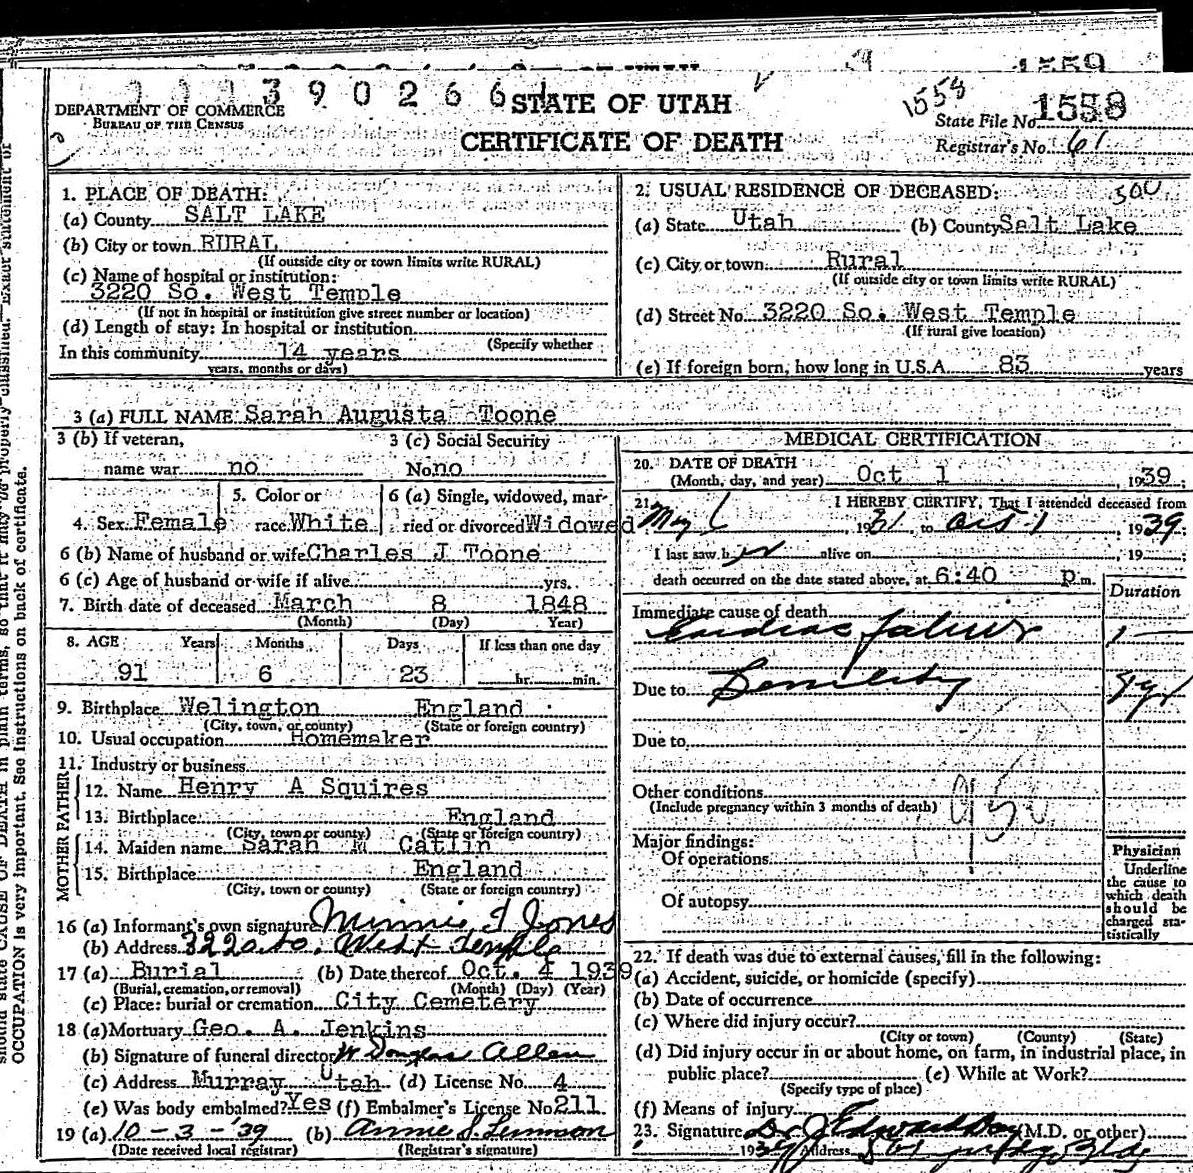 1559
390266
DEPARTMENT OF COMMERCE
BUREAU OF THE CENSUS
STATE OF UTAH
CERTIFICATE OF DEATH
1558
State File No. 1558
Registrar's No. 61
1. PLACE OF DEATH:
(a) County SALT LAKE
(b) City or town RURAL
(If outside city or town limits write RURAL)
(c) Name of hospital or institution:
3220 So. West Temple
(If not in hospital or institution give street number or location)
(d) Length of stay: In hospital or institution
(Specify whether
In this community 14 years
years, months or days)
2. USUAL RESIDENCE OF DECEASED: 500
(a) State Utah (b) County Salt Lake
(c) City or town Rural
(If outside city or town limits write RURAL)
(d) Street No. 3220 So. West Temple
(If rural give location)
(e) If foreign born, how long in U.S.A. 83 years
3 (a) FULL NAME Sarah Augusta Toone
3 (b) If veteran, 3 (c) Social Security
name war no No. no
4. Sex Female
5. Color or race White
6 (a) Single, widowed, married or divorced Widowed
6 (b) Name of husband or wife Charles J Toone
6 (c) Age of husband or wife if alive yrs.
7. Birth date of deceased March 8 1848
(Month) (Day) Year)
8. AGE Years Months Days If less than one day
91 6 23 hr. min.
9. Birthplace Welington England
(City, town, or county) (State or foreign country)
10. Usual occupation Homemaker
11. Industry or business
FATHER
12. Name Henry A Squires
13. Birthplace England
(City, town or county) (State or foreign country)
MOTHER
14. Maiden name Sarah M Catlin
15. Birthplace England
(City, town or county) (State or foreign country)
16 (a) Informant's own signature Minnie T Jones
(b) Address 3220 So. West Temple
17 (a) Burial (b) Date thereof Oct. 4 1939
(Burial, cremation, or removal) (Month) (Day) (Year)
(c) Place: burial or cremation City Cemetery
18 (a) Mortuary Geo. A. Jenkins
(b) Signature of funeral director W. Douglas Allen
(c) Address Murray Utah (d) License No. 4
(e) Was body embalmed? Yes (f) Embalmer's License No. 211
19 (a) 10-3-'39 (b) Annie S. Lemmon
(Date received local registrar) (Registrar's signature)
MEDICAL CERTIFICATION
20. DATE OF DEATH
(Month, day, and year) Oct 1 1939
21. I HEREBY CERTIFY, That I attended deceased from
May 1931 to Oct 1, 1939
I last saw her alive on 19
death occurred on the date stated above, at 6:40 p m.
Duration
Immediate cause of death
Cardiac failure 1
Due to Senility
Due to
Other conditions
(Include pregnancy within 3 months of death)
Major findings:
Of operations
Of autopsy
Physician
Underline
the cause to
which death
should be
charged sta-
tistically
22. If death was due to external causes, fill in the following:
(a) Accident, suicide, or homicide (specify)
(b) Date of occurrence
(c) Where did injury occur?
(City or town) (County) (State)
(d) Did injury occur in or about home, on farm, in industrial place, in
public place? (e) While at Work?
(Specify type of place)
(f) Means of injury
23. Signature Dr J Edward Day (M.D. or other)
1939 Address
should state CAUSE OF DEATH in plain terms, so that it may be properly classified. Exact statement of
OCCUPATION is very important. See instructions on back of certificate.